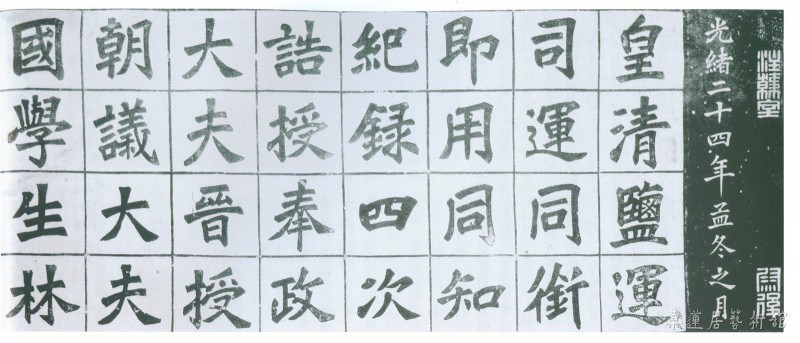 光緒二十四年孟冬之月
皇清鹽運
司運同銜
即用同知
紀録四次
誥授奉政
大夫晉授
朝議大夫
國學生林
蓮居藝術館